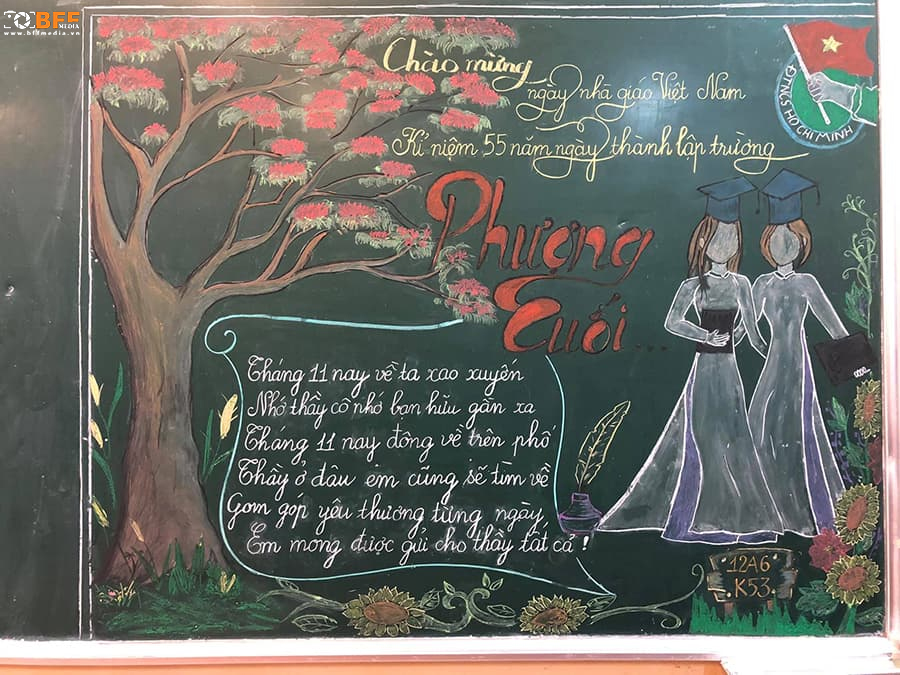 BFF
MEDIA
www.bffmedia.vn
Chào mừng
ngày nhà giáo Việt Nam
Kỉ niệm 55 năm ngày thành lập trường
Phượng
Cuối...
ĐTNCS HỒ CHÍ MINH
Tháng 11 nay về ta xao xuyến
Nhớ thầy cô nhớ bạn hữu gần xa
Tháng 11 nay đông về trên phố
Thầy ở đâu em cũng sẽ tìm về
Gom góp yêu thương từng ngày
Em mong được gửi cho thầy tất cả !
12A6
K53